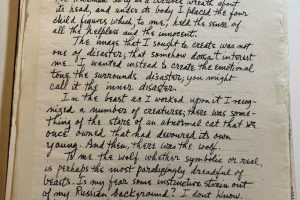 its head, and under its body I placed the four
child figures which, to me, held the sense of
all the helpless and the innocent.
The image that I sought to create was not
one of disaster; that somehow doesn't interest
me. I wanted instead to create the emotional
tone that surrounds disaster; you might
call it the inner disaster.
In the beast as I worked upon it I recog-
nized a number of creatures; there was some-
thing of the stare of an abnormal cat that we
once owned that had devoured its own
young. And then, there was the wolf.
To me, the wolf whether symbolic or real,
is perhaps the most paralyzingly dreadful of
beasts. Is my fear some instinctive strain out
of my Russian background? I don't know.